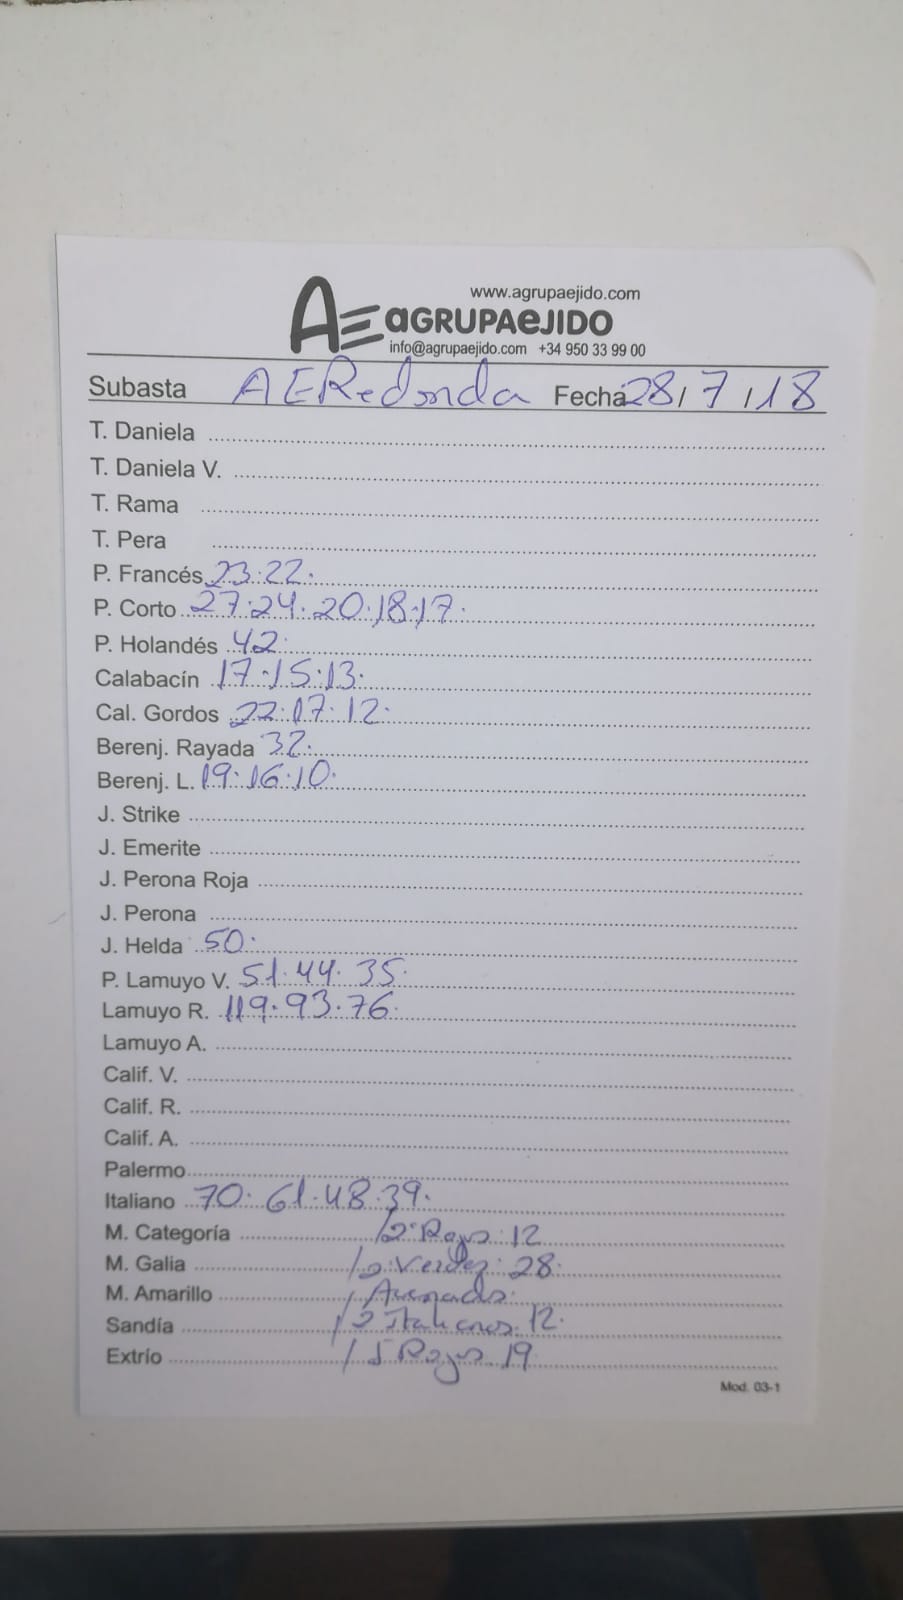 www.agrupaejido.com
AE aGRUPAeJIDO
info@agrupaejido.com +34 950 33 99 00
Subasta AERedonda Fecha 28/7/18
T. Daniela
T. Daniela V.
T. Rama
T. Pera
P. Francés 23.22.
P. Corto 27.24.20.18.17.
P. Holandés 42.
Calabacín 17.15.13.
Cal. Gordos 22.17.12.
Berenj. Rayada 32.
Berenj. L. 19.16.10.
J. Strike
J. Emerite
J. Perona Roja
J. Perona
J. Helda 50.
P. Lamuyo V. 51.44.35.
Lamuyo R. 119.93.76.
Lamuyo A.
Calif. V.
Calif. R.
Calif. A.
Palermo
Italiano 70.61.48.39.
M. Categoría Rojos 12
M. Galia 28.
M. Amarillo
Sandía Italianos 12.
Extrío Rojos 19
Mod. 03-1